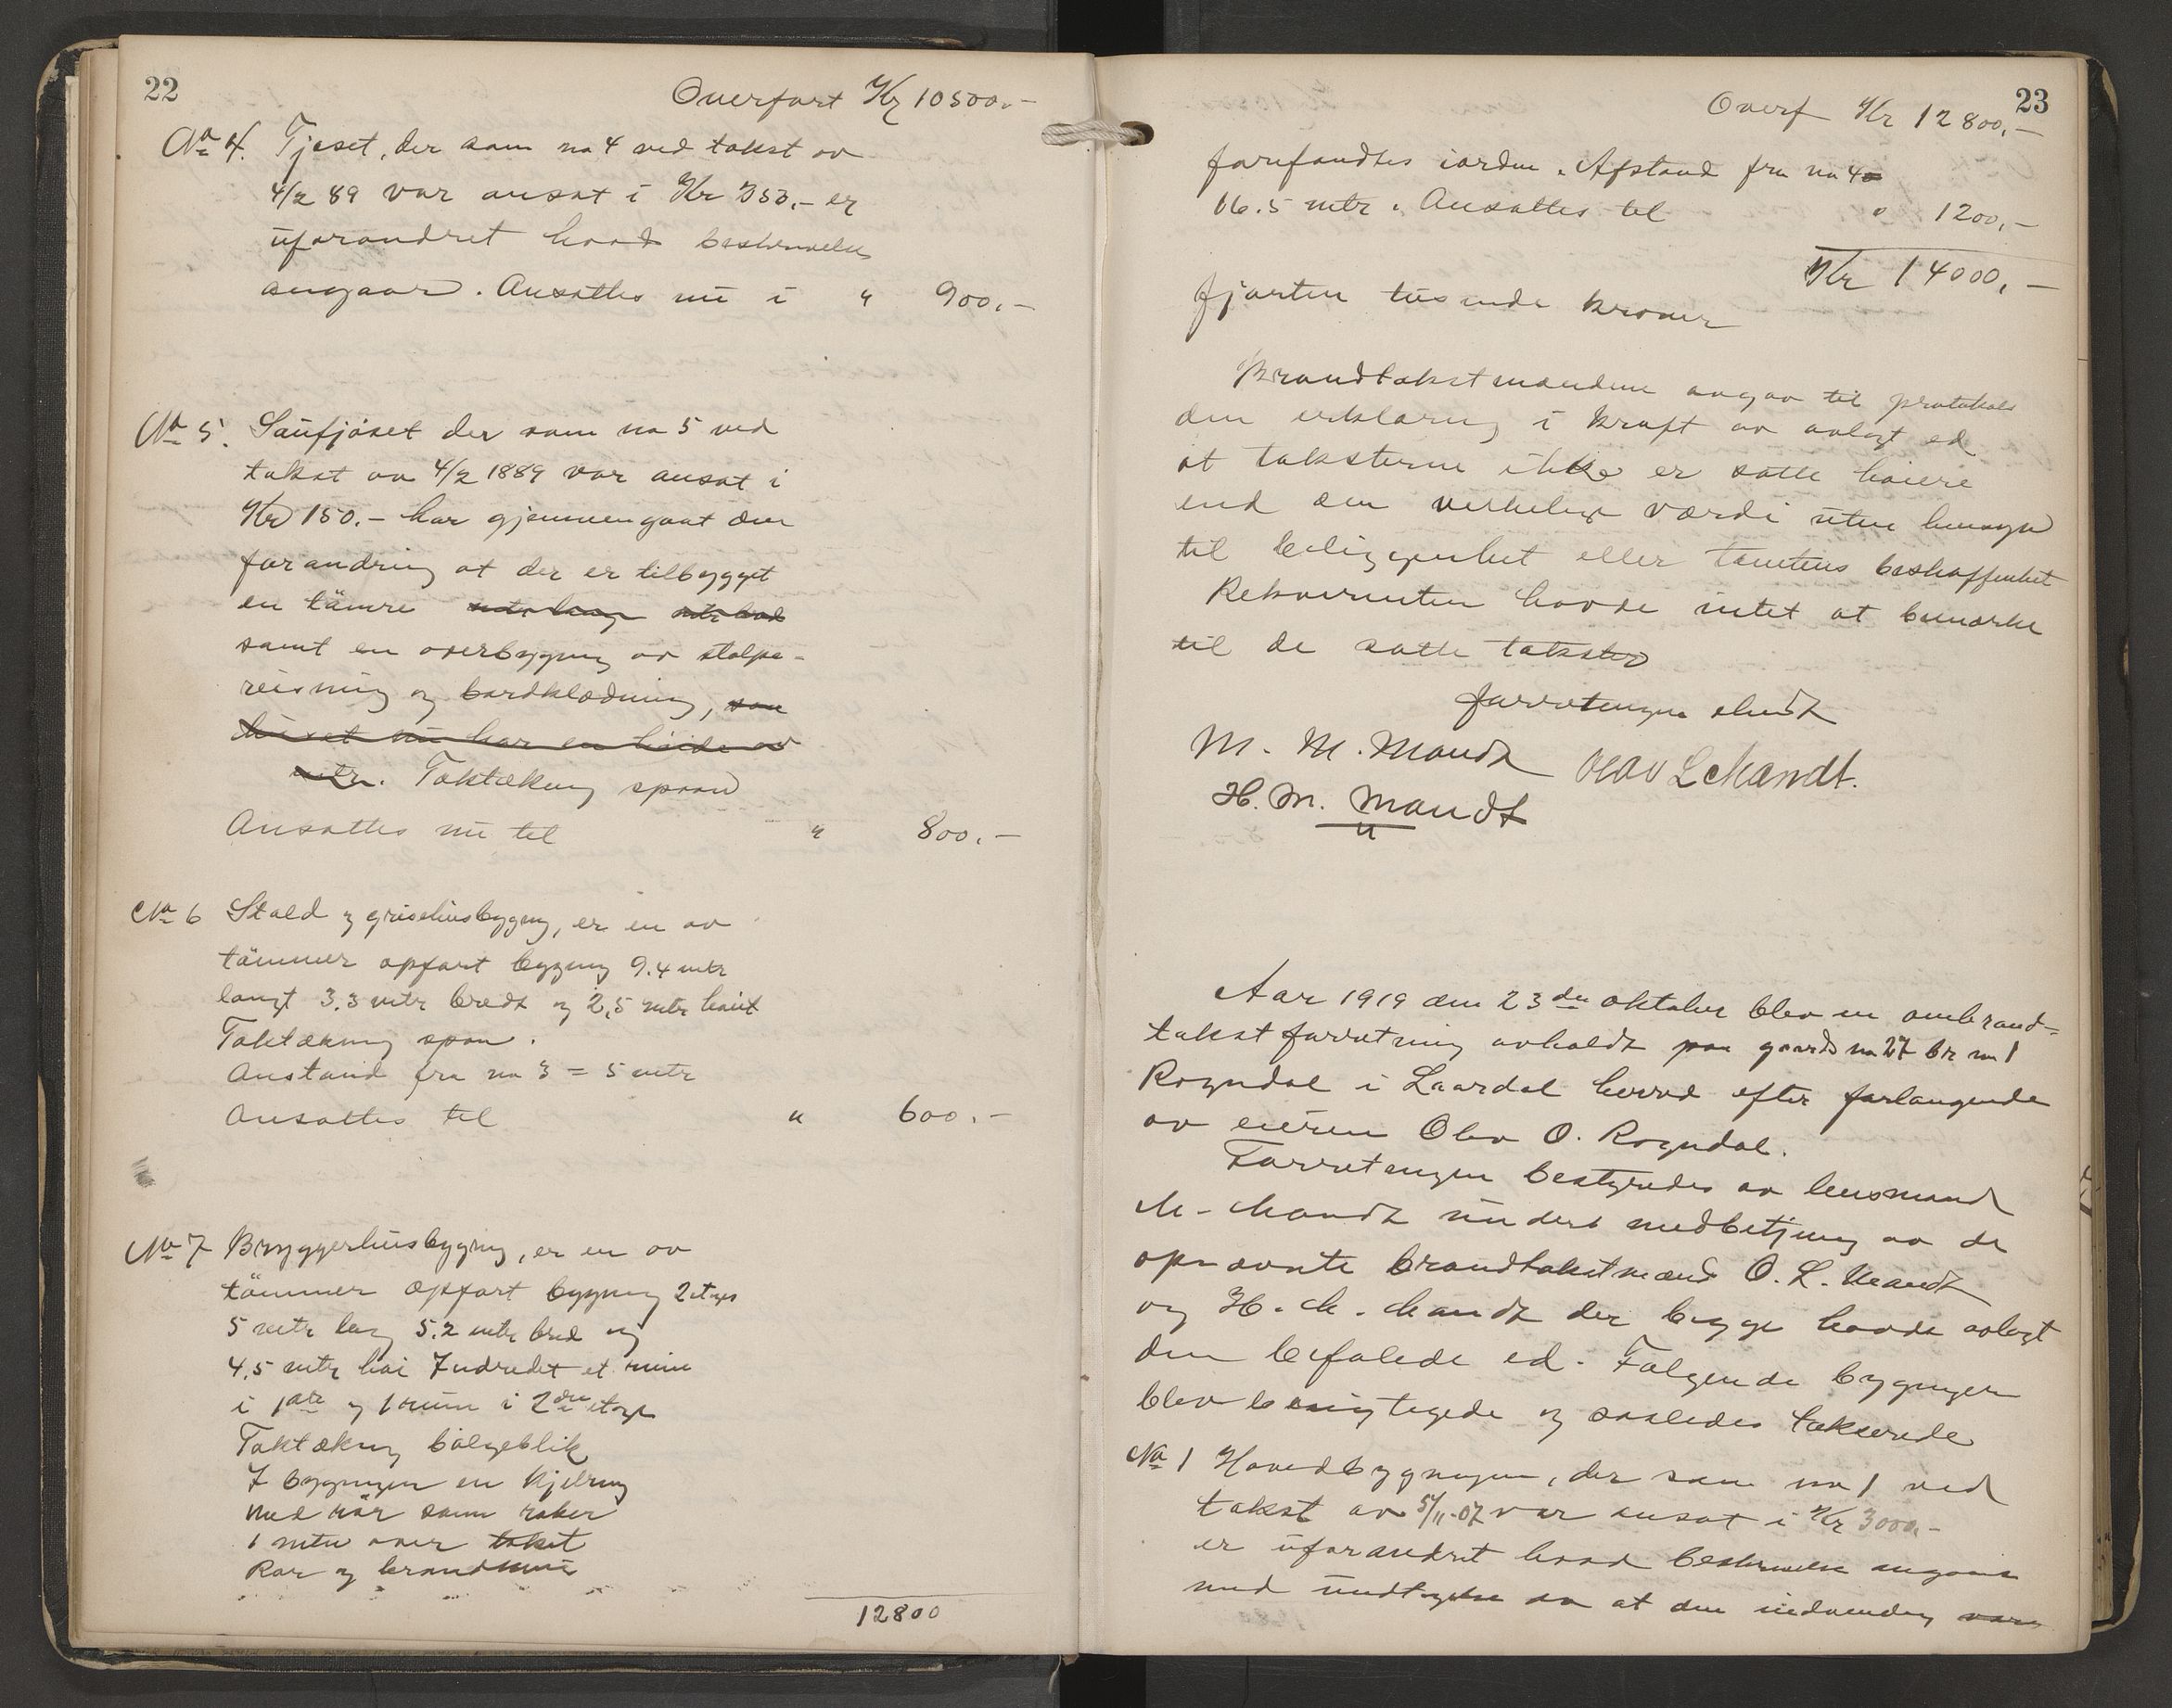 22
Overført Kr 10500.-
No 4. Fjøset, der som no 4 ved takst av
4/2 89 var ansat i Kr 350.- er
uforandret hvad beskrivelse
angaar. Ansættes nu i " 900.-
No 5. Saufjøset der som no 5 ved
takst av 4/2 1889 var ansat i
Kr 150.- har gjennemgaat den
forandring at der er tilbygget
en tømre
samt en overbygning av stolpe-
reisning og bordklædning, som
huset nu har en høide av
mtr. Taktækning spaan
Ansættes nu til " 800.-
No 6 Stald og grisehusbygning, er en av
tømmer opført bygning 9.4 mtr
langt 3.3 mtr bredt og 2,5 mtr høit
Taktækning spon.
Avstand fra no 3 = 5 mtr
Ansættes til " 600.-
No 7 Bryggerhusbygning, er en av
tømmer opført bygning 2 etages
5 mtr lang 5.2 mtr bred og
4.5 mtr høi Indredet et rum
i 1ste og 1 rum i 2den etage
Taktækning bølgeblik
I bygningen en kjelring
med rør som raker
1 mtr over taket
Rør og brandmur
12800
23
Overf Kr 12800,-
forefandtes iorden. Afstand fra no 4
16.5 mtr. Ansættes til " 1200,-
Kr 14000,-
fjorten tusinde kroner
Brandtakstmændene avgav til protokols
den erklæring i kraft av avlagt ed
at taksterne ikke er satte høiere
end den virkelige værdi uten hensyn
til beliggenhet eller tomtens beskaffenhet
Rekvirenten havde intet at bemærke
til de satte takster
forretningen sluttet
M. M. Mandt Olav L Mandt.
H. M. Mandt
Aar 1919 den 23de oktober blev en ombrand-
takstforretning avholdt paa gaards no 27 br no 1
Rogndal i Laardal herred efter forlangende
av eieren Olav O. Rogndal.
Forretningen bestyredes av lensmand
M. Mandt under medbetjening av de
opnævnte brandtakstmænd O. L. Mandt
og H. M. Mandt der begge havde avlagt
den befalede ed. Følgende bygninger
blev besigtigede og saaledes takserede
No 1 Hovedbygningen, der som no 1 ved
takst av 5/11-07 var ansat i Kr 3000,-
er uforandret hvad beskrivelse angaar
med undtagelse av at den indvendig var